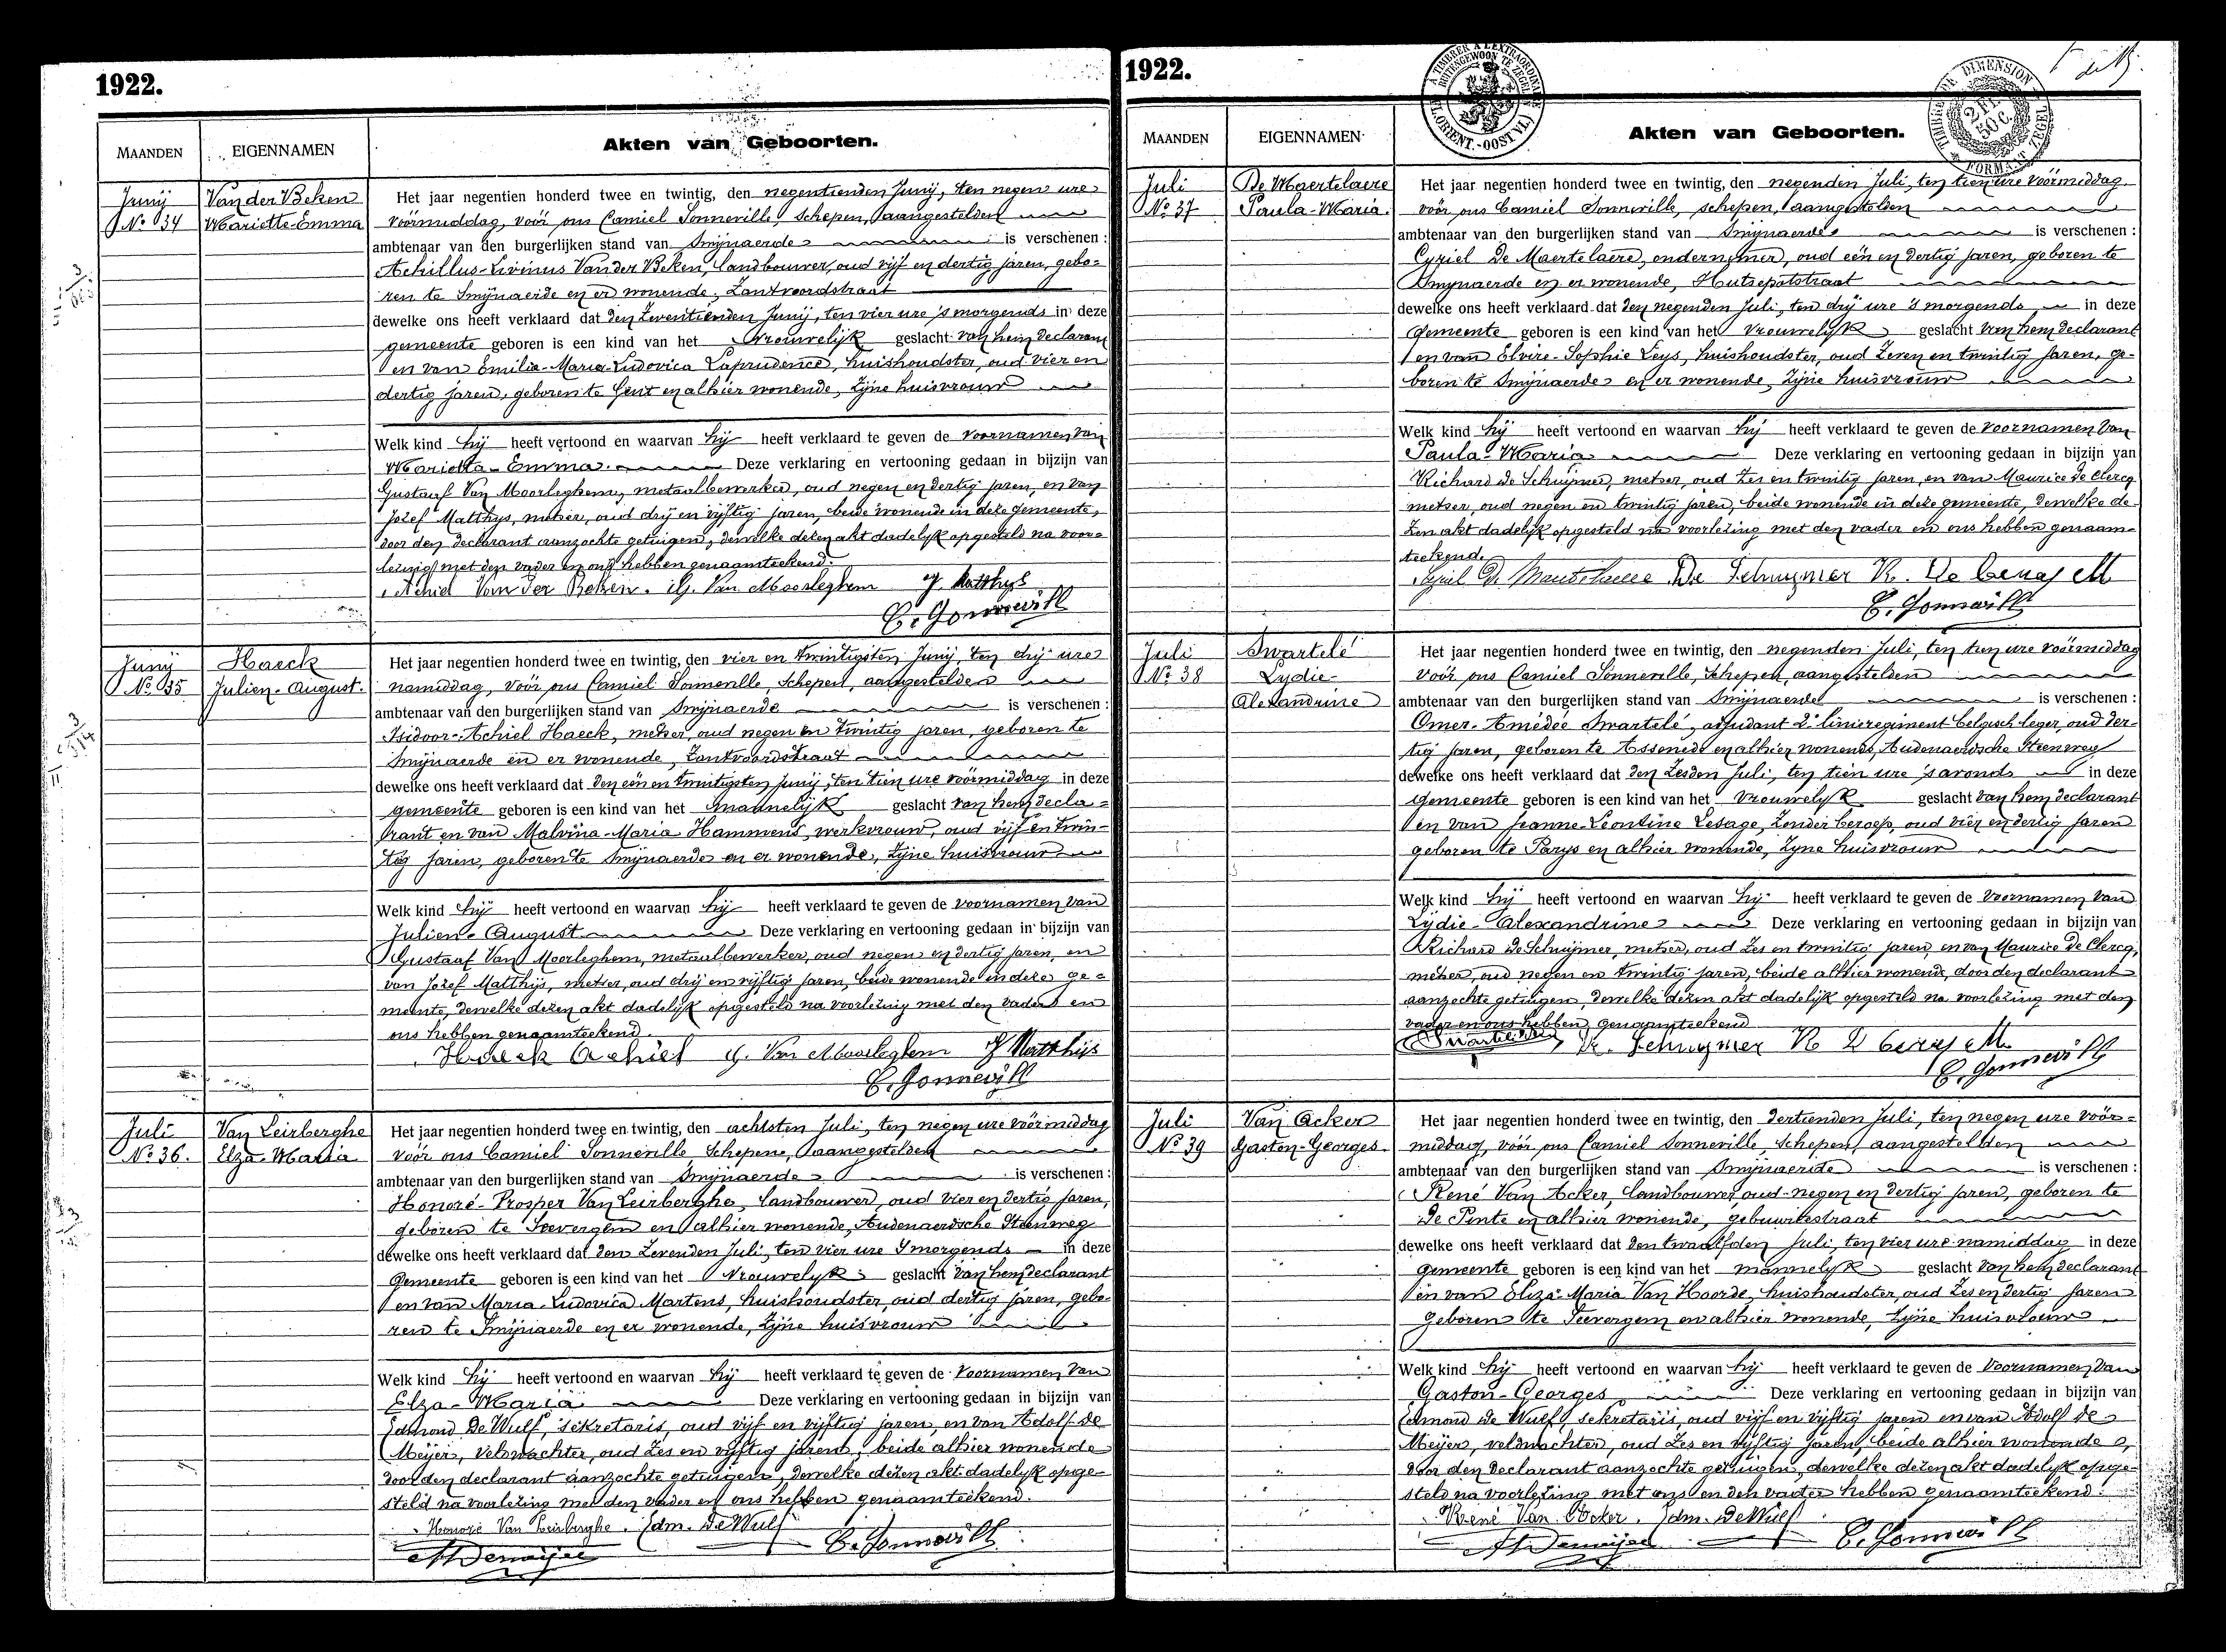 1922.
MAANDEN
EIGENNAMEN
Akten van Geboorten.
Junij
Nº 34
Van der Beken
Mariette-Emma
Het jaar negentien honderd twee en twintig, den negentienden Junij, ten negen ure
voórmiddag, voór ons Camiel Sonneville, schepen, aangestelden
ambtenaar van den burgerlijken stand van Smijnaerde is verschenen :
Achillus-Livinus Van der Beken, landbouwer, oud vijf en dertig jaren, gebo=
ren te Smijnaerde en er wonende, Zantvoordstraat
dewelke ons heeft verklaard dat den zeventienden Junij, ten vier ure 's morgends in deze
gemeente geboren is een kind van het vrouwelijk geslacht van hem declarant
en van Emilia-Maria-Ludovica Laprudence, huishoudster, oud vier en
dertig jaren, geboren te Gent en alhier wonende, zijne huisvrouw
Welk kind hij heeft vertoond en waarvan hij heeft verklaard te geven de voornamen van
Mariette-Emma. Deze verklaring en vertooning gedaan in bijzijn van
Gustaaf Van Moorleghem, metaalbewerker, oud negen en dertig jaren, en van
Jozef Matthys, metser, oud drij en vijftig jaren, beide wonende in deze gemeente,
door den declarant aanzochte getuigen, dewelke dezen akt dadelijk opgesteld na voor=
lezing met den vader en ons hebben genaamteekend.
Achiel Van Der Beken. G. Van Moorleghem J. Matthys
C. Sonneville
Junij
Nº 35
Haeck
Julien-August.
Het jaar negentien honderd twee en twintig, den vier en twintigsten Junij, ten drij ure
namiddag, voór ons Camiel Sonneville, schepen, aangestelden
ambtenaar van den burgerlijken stand van Smijnaerde is verschenen :
Isidoor-Achiel Haeck, metser, oud negen en twintig jaren, geboren te
Smijnaerde en er wonende, Zantvoordstraat
dewelke ons heeft verklaard dat den eën en twintigsten Junij, ten tien ure voórmiddag in deze
gemeente geboren is een kind van het mannelijk geslacht van hem decla=
rant en van Malvina-Maria Hammens, werkvrouw, oud vijf en twin-
tig jaren, geboren te Smijnaerde en er wonende, zijne huisvrouw
Welk kind hij heeft vertoond en waarvan hij heeft verklaard te geven de voornamen van
Julien-August Deze verklaring en vertooning gedaan in bijzijn van
Gustaaf Van Moorleghem, metaalbewerker, oud negen en dertig jaren, en
van Jozef Matthijs, metser, oud drij en vijftig jaren, beide wonende in deze ge=
meente, dewelke dezen akt dadelijk opgesteld na voorlezing met den vader en
ons hebben genaamteekend.
Haeck Achiel G. Van Moorleghem J Matthijs
C. Sonneville
Juli
Nº 36.
Van Leirberghe
Elza-Maria
Het jaar negentien honderd twee en twintig, den achtsten Juli, ten negen ure voórmiddag
voór ons Camiel Sonneville schepen, aangestelden
ambtenaar van den burgerlijken stand van Smijnaerde is verschenen :
Honoré-Prosper Van Leirberghe, landbouwer, oud vier en dertig jaren,
geboren te Seevergem en alhier wonende, Audenaerdsche Steenweg
dewelke ons heeft verklaard dat den zevenden Juli, ten vier ure 's morgends in deze
gemeente geboren is een kind van het vrouwelyk geslacht van hem declarant
en van Maria-Ludovica Martens, huishoudster, oud dertig jaren, gebo-
ren te Smijnaerde en er wonende, zijne huisvrouw
Welk kind hij heeft vertoond en waarvan hij heeft verklaard te geven de voornamen van
Elza-Maria Deze verklaring en vertooning gedaan in bijzijn van
Edmond De Wulf, sekretaris, oud vijf en vijftig jaren, en van Adolf De
Meijer, veldwachter, oud zes en vijftig jaren, beide alhier wonende
door den declarant aanzochte getuigen, dewelke dezen akt dadelyk opge-
steld na voorlezing met den vader en ons hebben genaamteekend.
Honoré Van Leirberghe. Edm. DeWulf
C. Sonneville
A Demeijer
1922.
A TIMBRER A L'EXTRAORDINAIRE
BUITENGEWOON TE ZEGELEN
FL. ORIENT.-OOST VL.
TIMBRE DE DIMENSION
2 FR. 50 C.
FORMAAT ZEGEL
MAANDEN
EIGENNAMEN
Akten van Geboorten.
Juli
Nº 37
De Maertelaere
Paula-Maria.
Het jaar negentien honderd twee en twintig, den negenden Juli, ten tien ure voórmiddag
voór ons Camiel Sonneville, schepen, aangestelden
ambtenaar van den burgerlijken stand van Smijnaerde is verschenen :
Cyriel De Maertelaere, ondernemer, oud eën en dertig jaren, geboren te
Smijnaerde en er wonende, Hutsepotstraat
dewelke ons heeft verklaard dat den negenden Juli, ten drij ure 's morgends in deze
gemeente geboren is een kind van het vrouwelijk geslacht van hem declarant
en van Elvire-Sophie Leys, huishoudster, oud zeven en twintig jaren, ge-
boren te Smijnaerde en er wonende, zijne huisvrouw
Welk kind hij heeft vertoond en waarvan hij heeft verklaard te geven de voornamen van
Paula-Maria Deze verklaring en vertooning gedaan in bijzijn van
Richard De Schuijmer, metser, oud zes en twintig jaren, en van Maurice De Clercq
metser, oud negen en twintig jaren, beide wonende in deze gemeente, dewelke de-
zen akt dadelijk opgesteld na voorlezing met den vader en ons hebben genaam-
teekend.
De Schuymer R. De Clercq M
C. Sonneville
Juli
Nº 38
Swartelé
Lydie-
Alexandrine
Het jaar negentien honderd twee en twintig, den negenden Juli, ten tien ure voórmiddag
voór ons Camiel Sonneville, schepen, aangestelden
ambtenaar van den burgerlijken stand van Smijnaerde is verschenen :
Omer-Amedée Swartelé, adjudant 2e linieregiment belgisch leger, oud der-
tig jaren, geboren te Assenede en alhier wonende, Audenaerdsche Steenweg
dewelke ons heeft verklaard dat den zesden Juli, ten tien ure 's avonds in deze
gemeente geboren is een kind van het vrouwelyk geslacht van hem declarant
en van Jeanne-Leontine Lesage, zonder beroep, oud vier en dertig jaren
geboren te Parys en alhier wonende, zyne huisvrouw
Welk kind hij heeft vertoond en waarvan hij heeft verklaard te geven de voornamen van
Lydie-Alexandrine Deze verklaring en vertooning gedaan in bijzijn van
Richard De Schuijmer, metser, oud zes en twintig jaren, en van Maurice De Clercq,
metser, oud negen en twintig jaren, beide alhier wonende, door den declarant
aanzochte getuigen, dewelke dezen akt dadelijk opgesteld na voorlezing met den
vader en ons hebben genaamteekend
C. Sonneville
Juli
Nº 39
Van Acker
Gaston-Georges.
Het jaar negentien honderd twee en twintig, den dertienden Juli, ten negen ure voór=
middag, voór ons Camiel Sonneville, schepen, aangestelden
ambtenaar van den burgerlijken stand van Smijnaerde is verschenen :
René Van Acker, landbouwer, oud negen en dertig jaren, geboren te
De Pinte en alhier wonende, gebuurtestraat
dewelke ons heeft verklaard dat den twaalfden Juli, ten vier ure namiddag in deze
gemeente geboren is een kind van het mannelyk geslacht van hem declarant
en van Eliza-Maria Van Hoorde, huishoudster, oud zes en dertig jaren
geboren te Seevergem en alhier wonende, zijne huisvrouw
Welk kind hij heeft vertoond en waarvan hij heeft verklaard te geven de voornamen van
Gaston-Georges, Deze verklaring en vertooning gedaan in bijzijn van
Edmond De Wulf, sekretaris, oud vijf en vijftig jaren en van Adolf De
Meijer, veldwachter, oud zes en vijftig jaren, beide alhier wonende,
door den declarant aanzochte getuigen, dewelke dezen akt dadelyk opge-
steld na voorlezing met ons en den vader hebben genaamteekend.
René Van Acker. Edm. DeWulf
C. Sonneville
A Demeijer